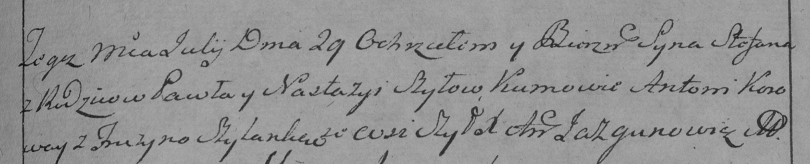 Tegoż Mca Julij Dnia 29 Ochrzciłem y Bierzm Syna Stefana
z Rodzicow Pawła y Nastazyi Szyłow Kumowie Antoni Koro
way z Fruzyno Szylanko ze wsi Szył X An Jazgunowicz